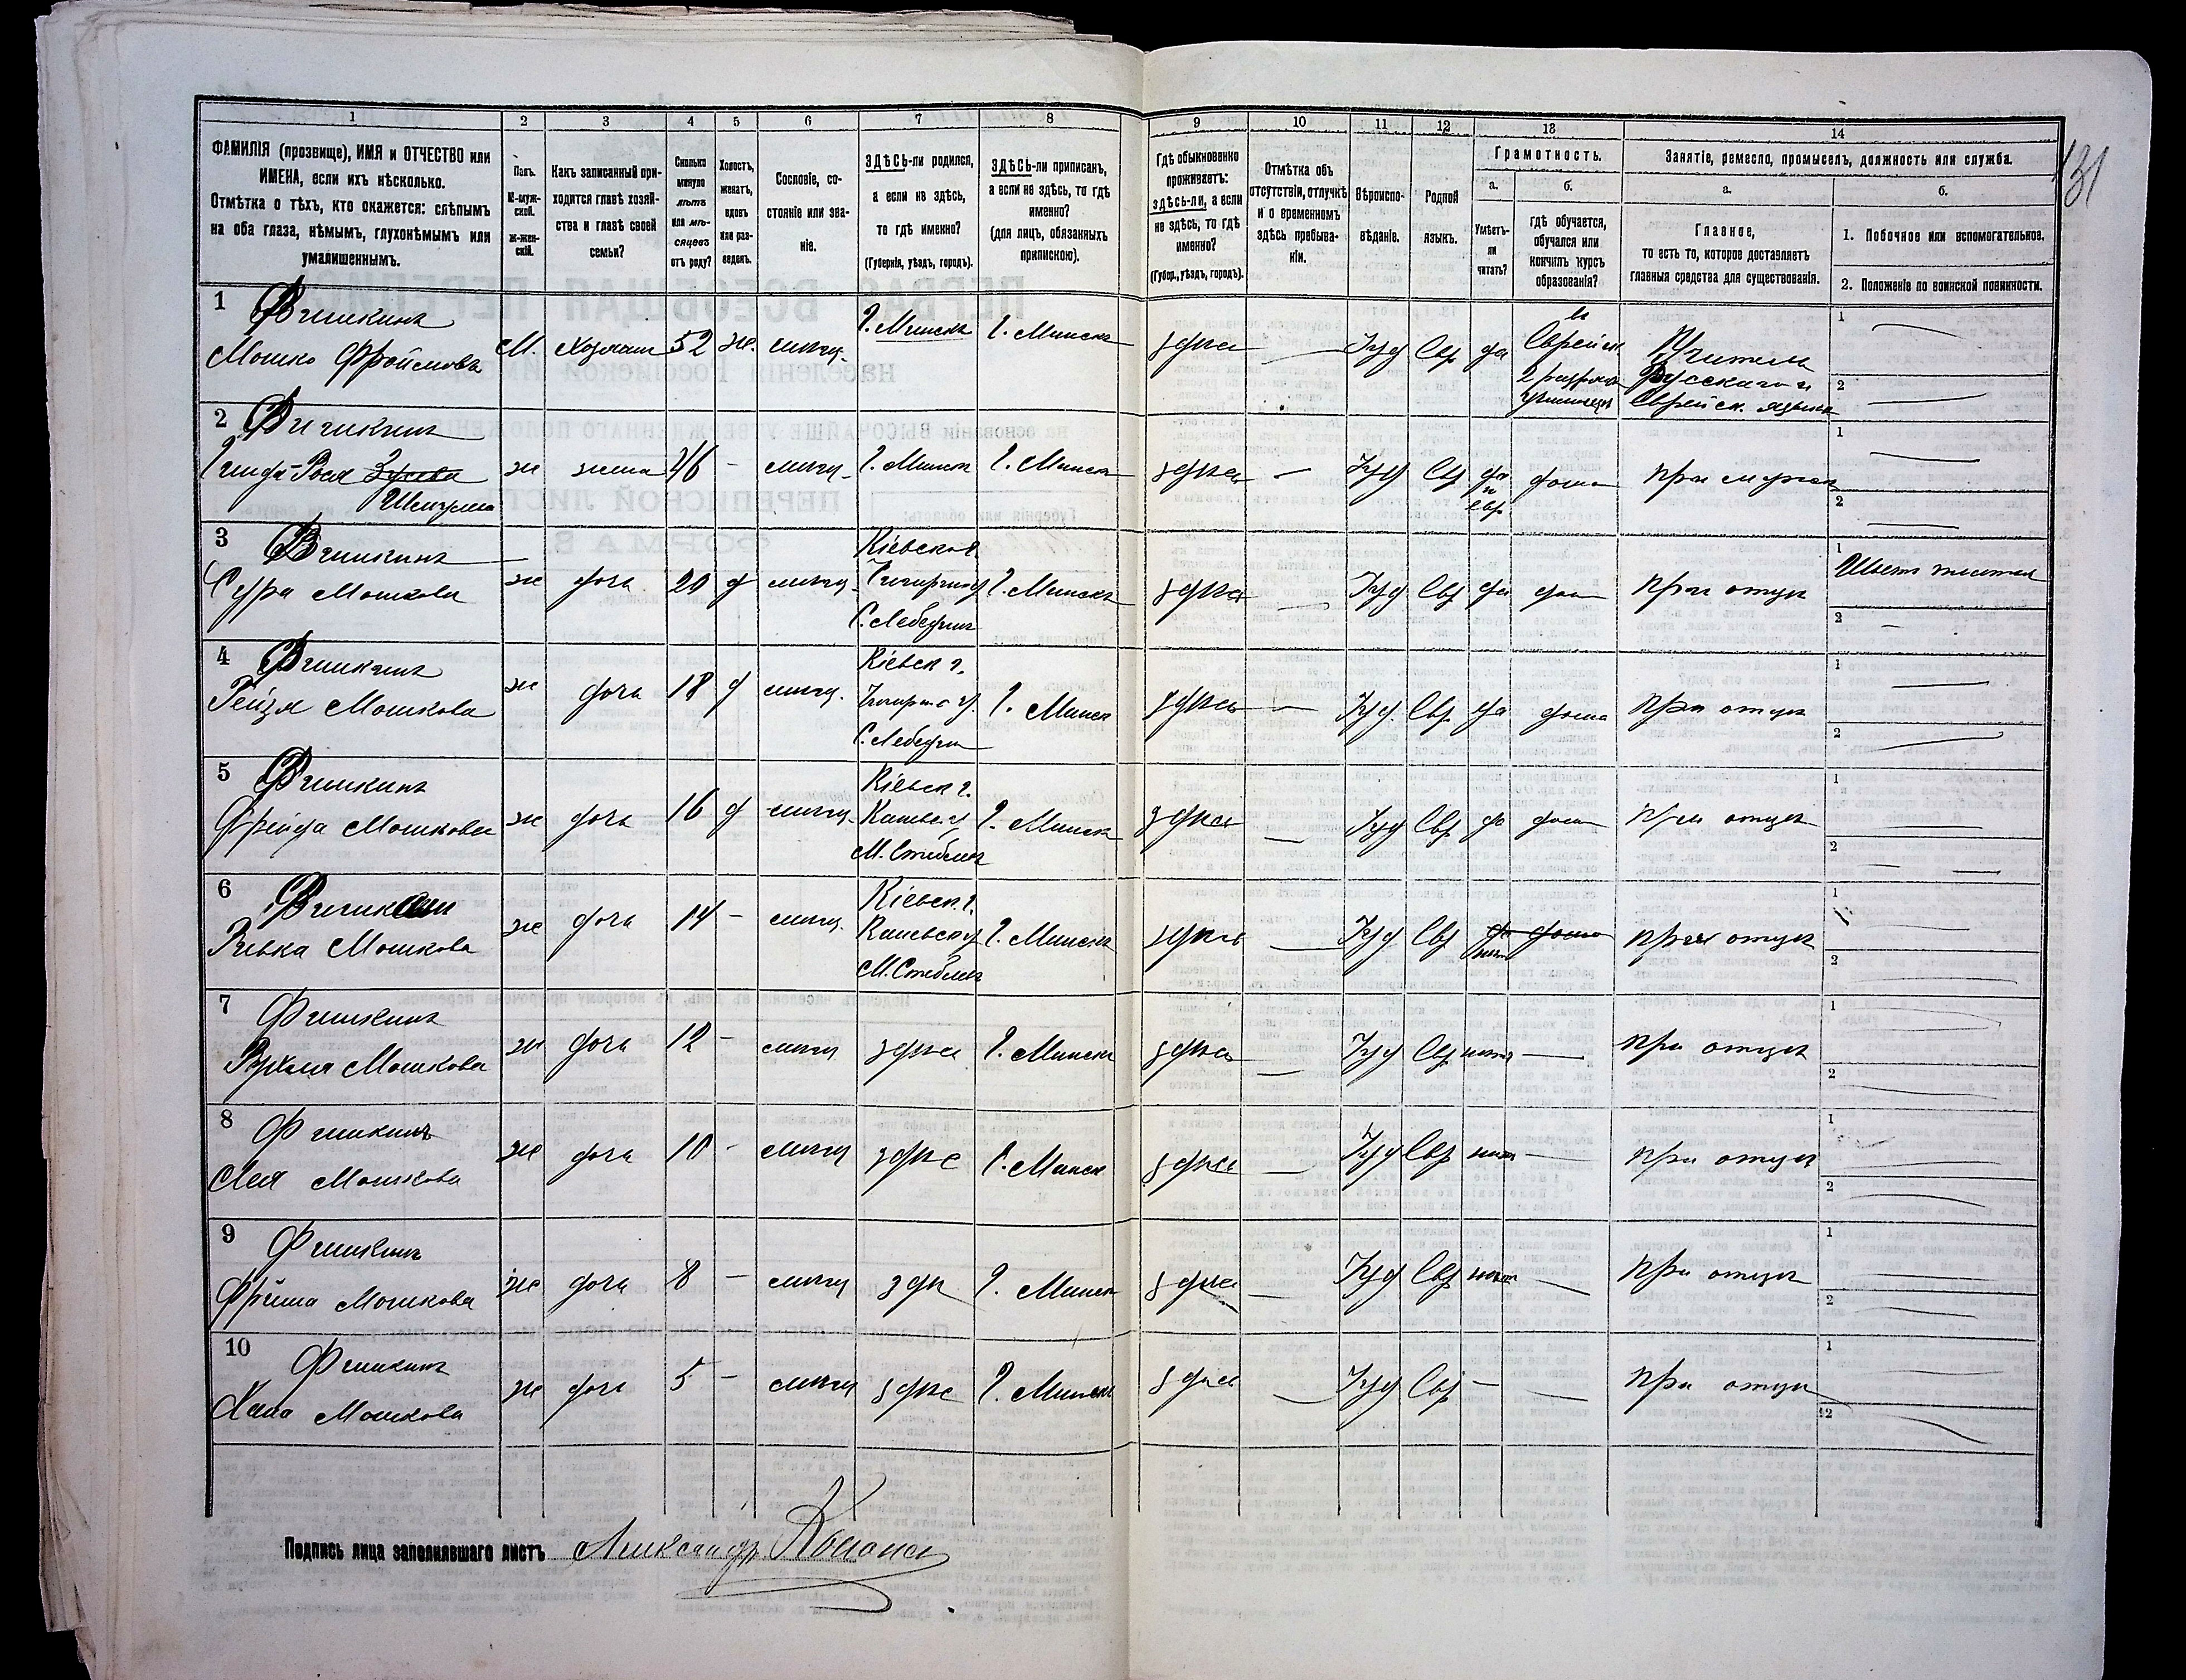 131
1
2
3
4
5
6
7
8
9
10
11
12
13
14
ФАМИЛІЯ (прозвище), ИМЯ и ОТЧЕСТВО или
ИМЕНА, если ихъ нѣсколько.
Отмѣтка о тѣхъ, кто окажется: слѣпымъ
на оба глаза, нѣмымъ, глухонѣмымъ или
умалишеннымъ.
Полъ.
М-муж-
ской.
Ж-жен-
скій.
Какъ записанный при-
ходится главѣ хозяй-
ства и главѣ своей
семьи?
Сколько
минуло
лѣтъ
или мѣ-
сяцевъ
отъ роду?
Холостъ,
женатъ,
вдовъ
или раз-
веденъ.
Сословіе, со-
стояніе или зва-
ніе.
ЗДѢСЬ-ли родился,
а если не здѣсь,
то гдѣ именно?
(Губернія, уѣздъ, городъ).
ЗДѢСЬ-ли приписанъ,
а если не здѣсь, то гдѣ
именно?
(для лицъ, обязанныхъ
припискою).
Гдѣ обыкновенно
проживаетъ:
здѣсь-ли, а если
не здѣсь, то гдѣ
именно?
(Губер., уѣздъ, городъ).
Отмѣтка объ
отсутствіи, отлучкѣ
и о временномъ
здѣсь пребыва-
ніи.
Вѣроиспо-
вѣданіе.
Родной
языкъ.
Грамотность.
а.
Умѣетъ-
ли
читать?
б.
гдѣ обучается,
обучался или
кончилъ курсъ
образованія?
Занятіе, ремесло, промыселъ, должность или служба.
а.
Главное,
то есть то, которое доставляетъ
главныя средства для существованія.
б.
1. Побочное или вспомогательное.
2. Положеніе по воинской повинности.
1 Фишкинъ
Мошко Фроимовъ
М. Хозяинъ 52 ж. мѣщ. Г. Минскъ Г. Минскъ здѣсь — Іуд Евр да
въ
Еврейск.
2 разрядн.
училищѣ
Учитель
Русскаго и
Еврейск. языка
1 —
2 —
2 Фишкинъ
Рося
ж жена 46 - мѣщ. Г. Минск Г. Минск здѣсь — Іуд Евр да
и
евр
дома при мужѣ
1 —
2 —
3 Фишкинъ
Сура Мошкова
ж дочь 20 д мѣщ.
Кіевской г.
Чигиринск у
С. Лебединъ
Г. Минскъ здѣсь — Іуд Евр да дома При отцѣ
1 Шьетъ платья
2 —
4 Фишкинъ
Рейзя Мошкова
ж дочь 18 д мѣщ.
Кіевск г.
Чигиринс у.
С. Лебедин
Г. Минск здѣсь — Іуд. Евр да дома При отцѣ
1 —
2 —
5 Фишкинъ
Фрейда Мошкова
ж дочь 16 д мѣщ.
Кіевск г.
Каневск у
М. Стеблевъ
Г. Минскъ здѣсь — Іуд Евр да дома При отцѣ
1 —
2 —
6 Фишкин
Ривка Мошкова
ж дочь 14 - мѣщ.
Кіевск. г.
Каневск у
М. Стеблевъ
Г. Минскъ здѣсь — Іуд Евр да дома
нѣт
При отцѣ
1 —
2 —
7 Фишкинъ
Рухля Мошкова
ж дочь 12 - мѣщ здѣсь Г. Минскъ здѣсь — Іуд Евр нѣтъ — При отцѣ
1 —
2 —
8 Фишкинъ
Лея Мошкова
ж дочь 10 - мѣщ здѣсь Г. Минск здѣсь — Іуд Евр нѣтъ — При отцѣ
1 —
2 —
9 Фишкинъ
Фрума Мошкова
ж дочь 8 - мѣщ здѣс Г. Минск здѣсь — Іуд Евр нѣтъ — При отцѣ
1 —
2 —
10 Фишкинъ
Хана Мошкова
ж дочь 5 - мѣщ здѣсь Г. Минскъ здѣсь — Іуд Евр — — При отцѣ
1 —
2 —
Подпись лица заполнявшаго листъ Александръ